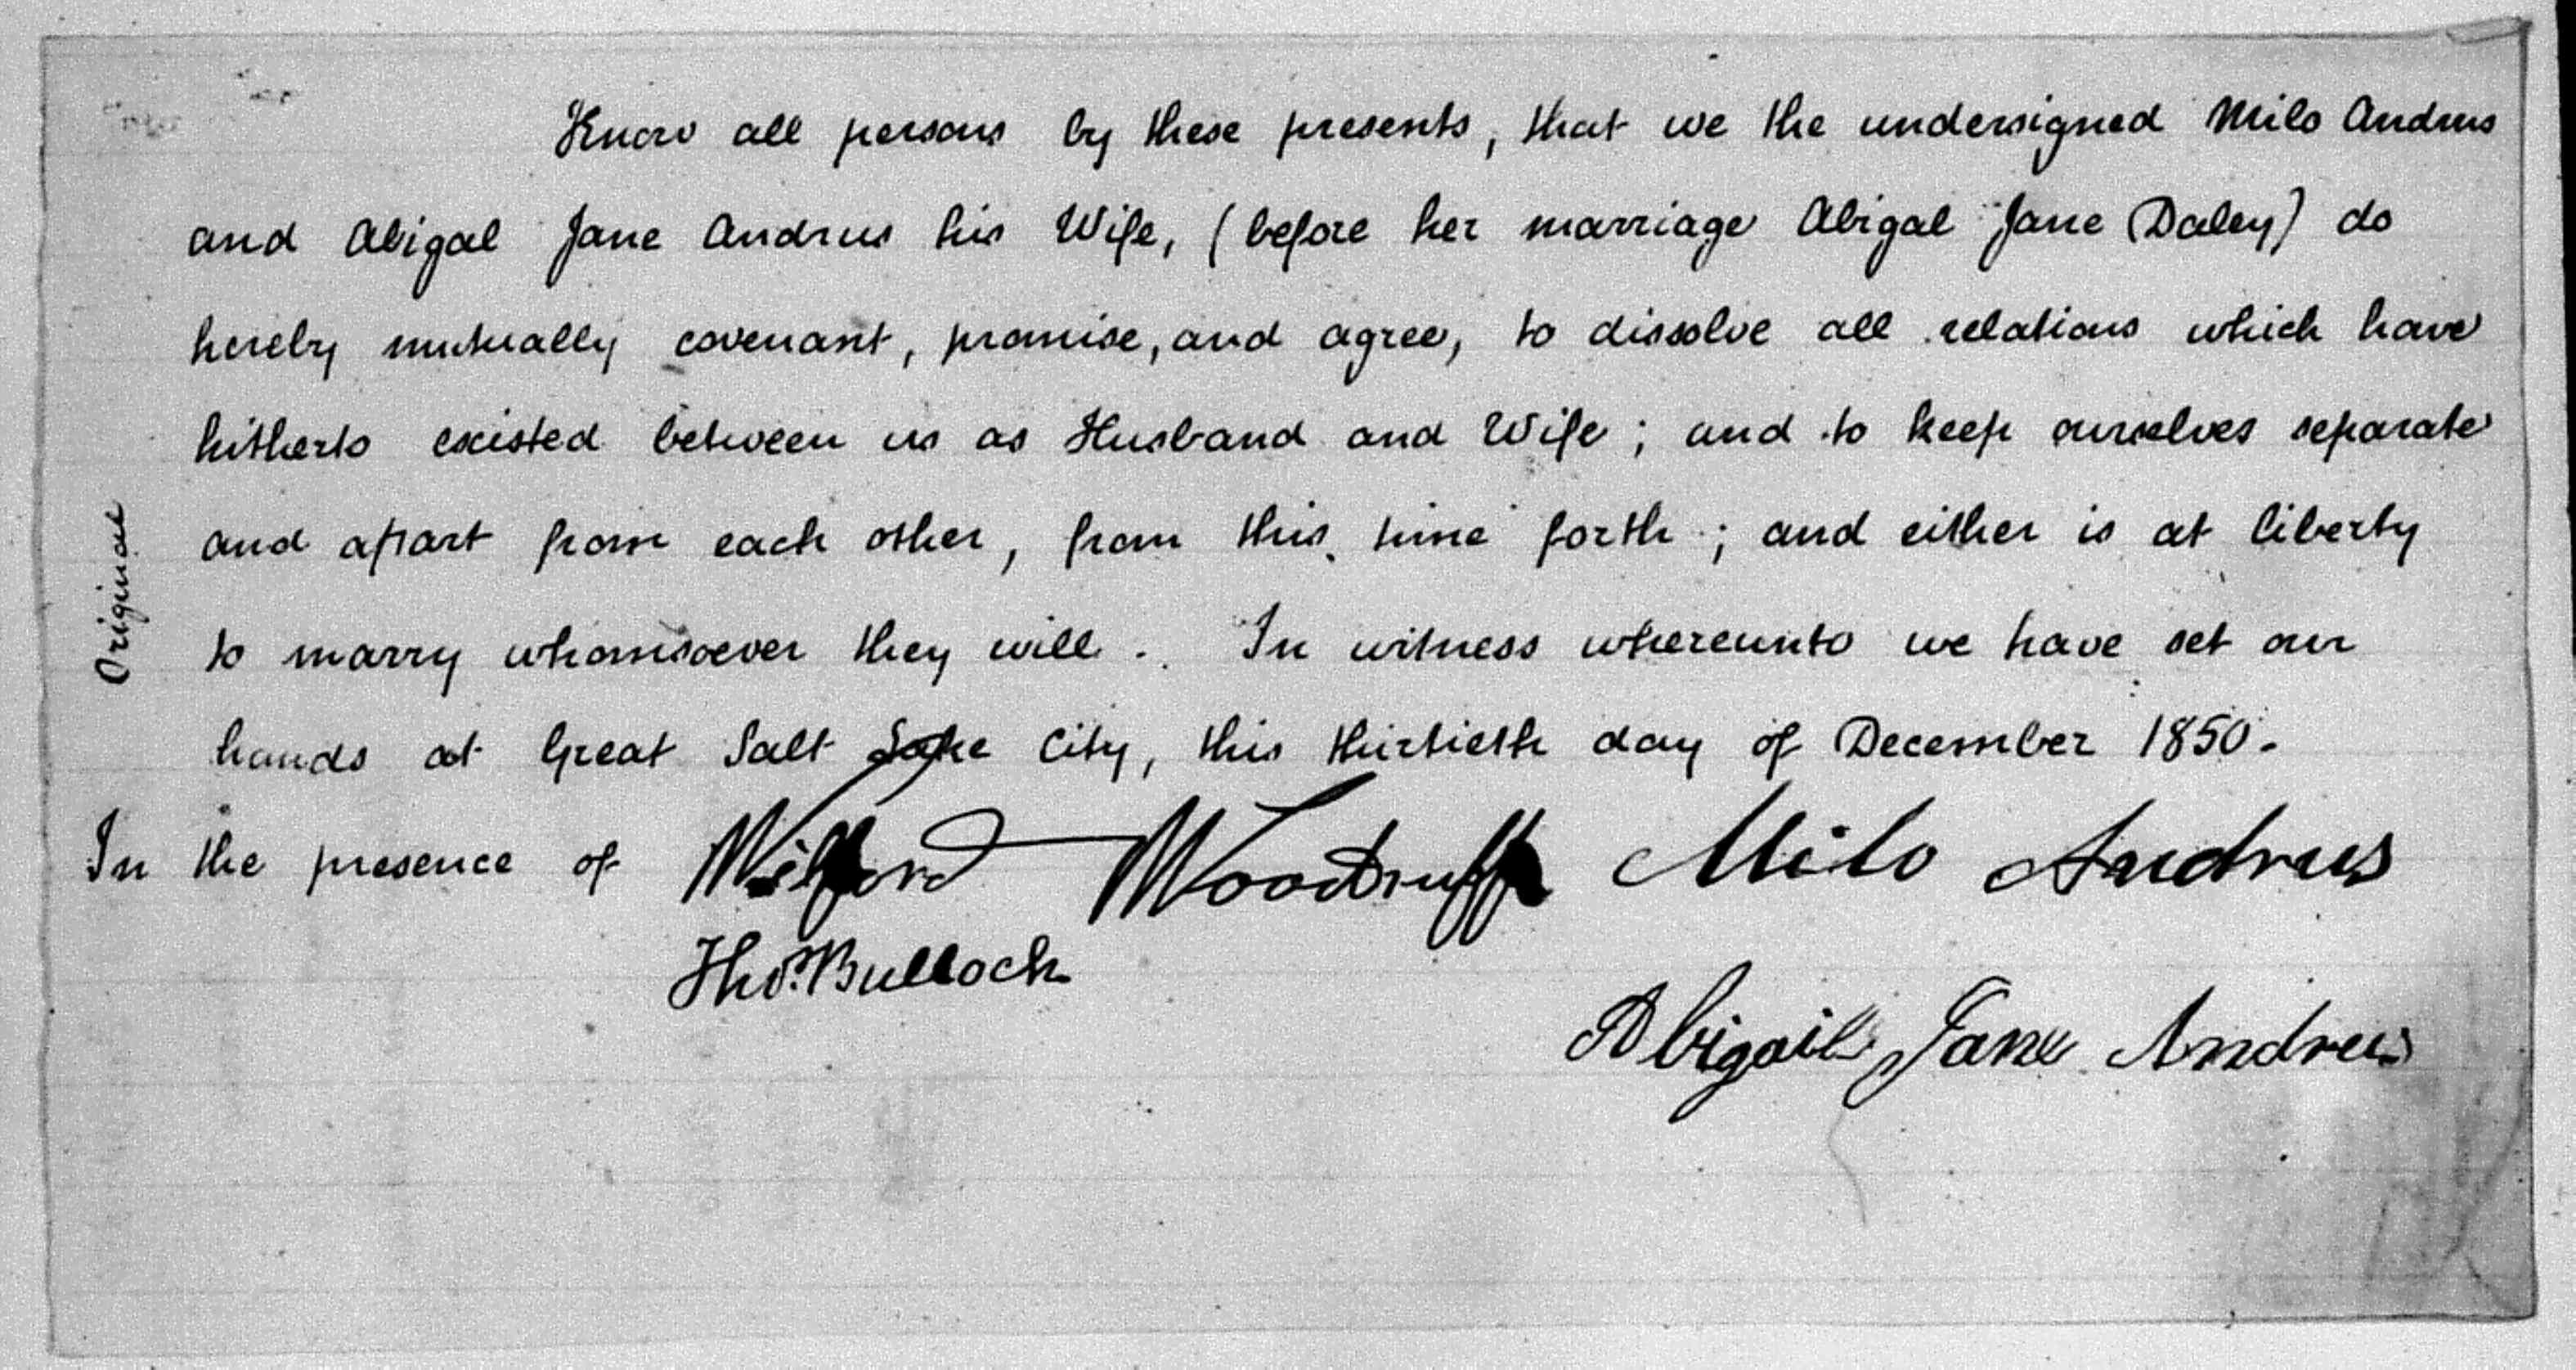 Know all persons by these presents, that we the undersigned Milo Andrus
and Abigal Jane Andrus his Wife, (before her marriage Abigal Jane Daley) do
hereby mutually covenant, promise, and agree, to dissolve all relations which have
hitherto existed between us as Husband and Wife; and to keep ourselves separate
and apart from each other, from this time forth; and either is at liberty
to marry whomsoever they will. In witness whereunto we have set our
hands at Great Salt Lake City, this thirtieth day of December 1850.
In the presence of Wilford Woodruff Milo Andrus
Thos. Bullock
Abigail Jane Andrus
Original